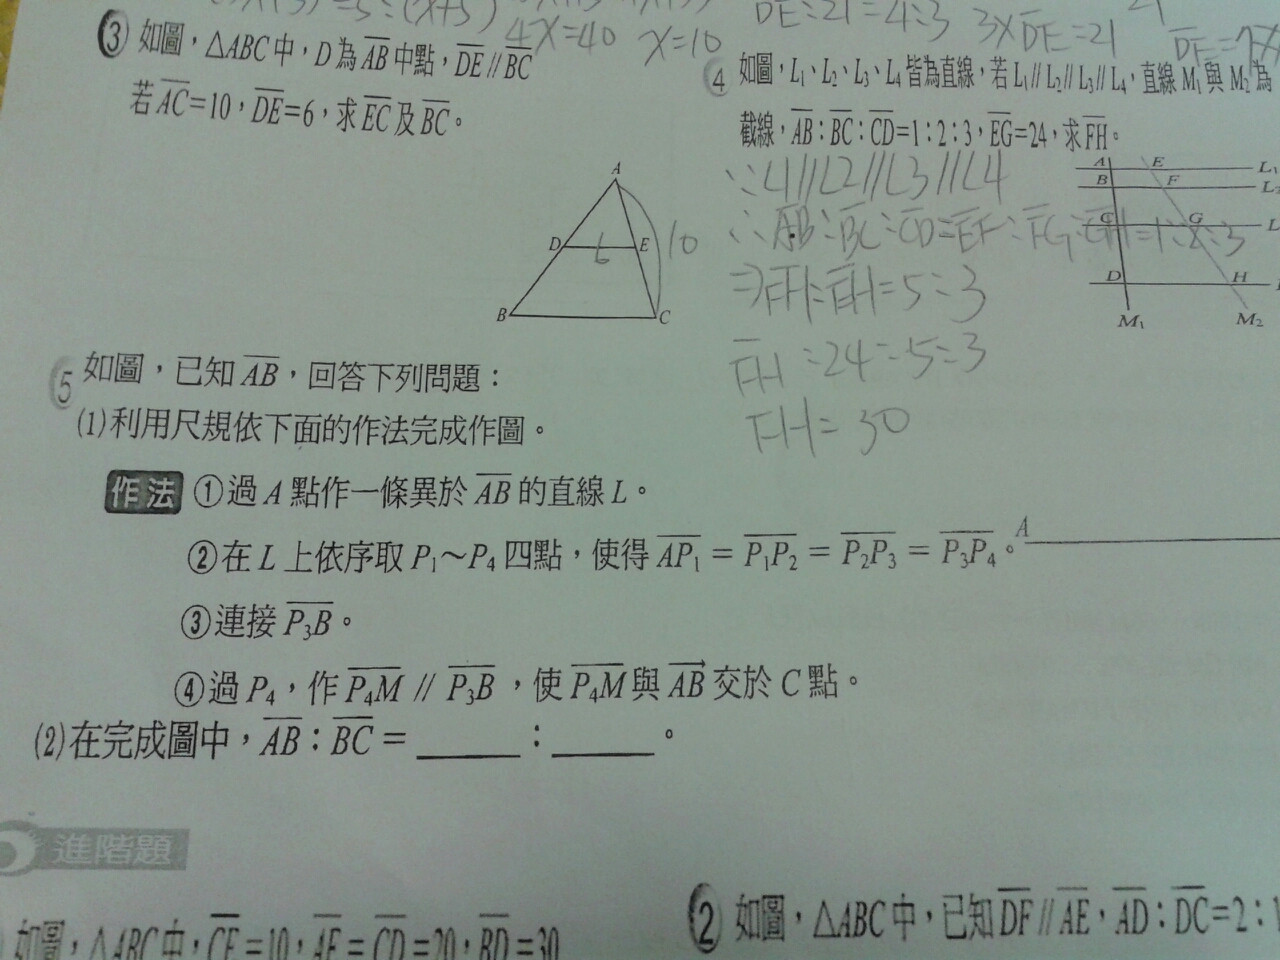 4x=40 x=10
DE:21=4:3 3×DE=21
③如圖，△ABC中，D為AB中點，DE//BC
若AC=10，DE=6，求EC及BC。
A
D
6
E
10
B
C
④如圖，L₁、L₂、L₃、L₄皆為直線，若L₁//L₂//L₃//L₄，直線M₁與M₂為
截線，AB：BC：CD=1：2：3，EG=24，求FH。
∵L1//L2//L3//L4
∴AB:BC:CD=EF:FG:GH=1:2:3
FH:24=5:3
FH=30
A E L₁
B F
C G
D H
M₁ M₂
5 如圖，已知AB，回答下列問題：
(1)利用尺規依下面的作法完成作圖。
作法 ①過A點作一條異於AB的直線L。
②在L上依序取P₁～P₄四點，使得AP₁=P₁P₂=P₂P₃=P₃P₄。
A
③連接P₃B。
④過P₄，作P₄M//P₃B，使P₄M與AB交於C點。
(2)在完成圖中，AB：BC=______：______。
進階題
如圖，△ABC中，CE=10，AE=CD=20，BD=30
②如圖，△ABC中，已知DF//AE，AD：DC=2：1